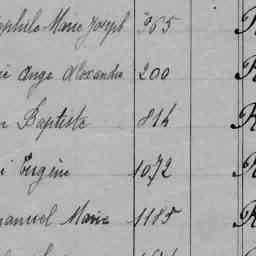 ophile Marie Joseph 365 R
ie Ange Alexandre 200 R
n Baptiste 814 R
i Eugène 1072 R
manuel Marie 1185 R